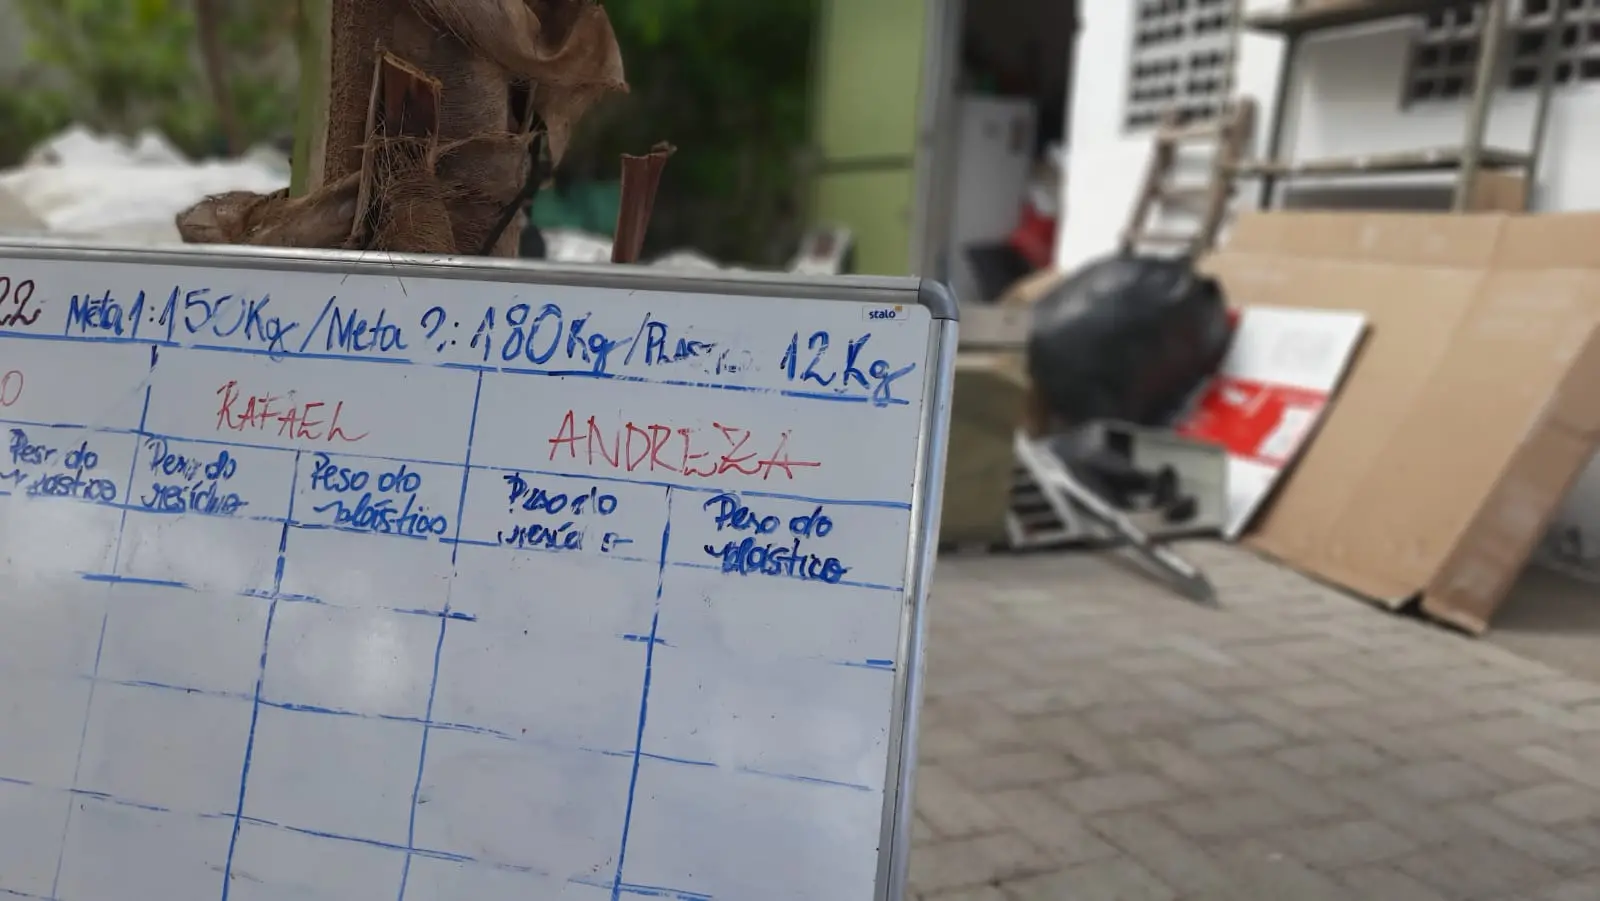 22 Meta 1: 150Kg / Meta 2: 180Kg / Plástico 12Kg
stalo
O RAFAEL ANDREZA
Peso do plástico
Peso do resíduo
Peso do plástico
Peso do resíduo
Peso do plástico